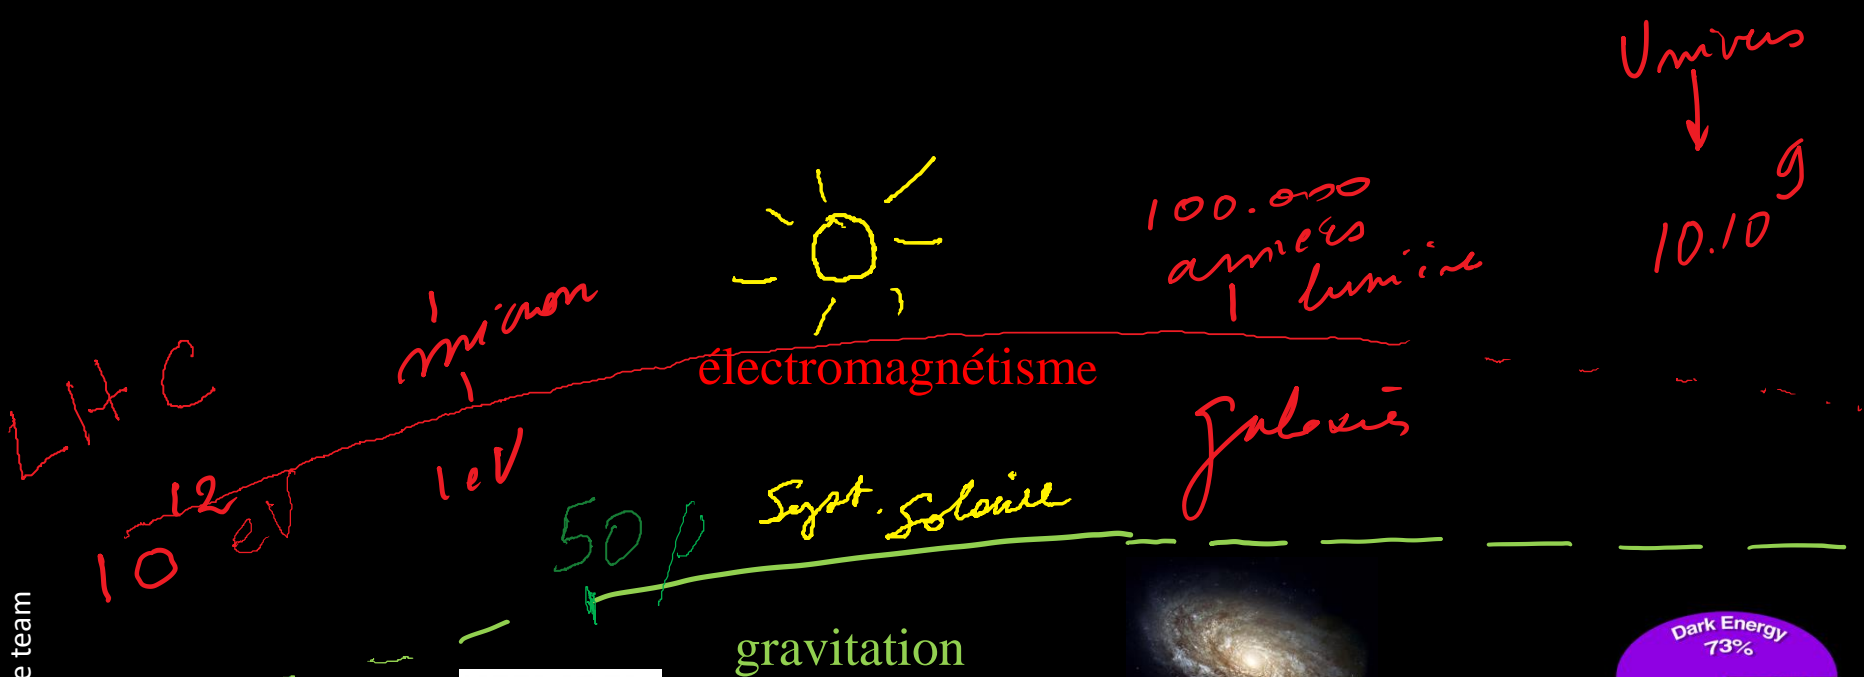 Univers
10.10⁹
100.000
années
lumière
micron
LHC
électromagnétisme
galaxies
1 eV
10¹² eV
50 µ
Syst. Solaire
gravitation
Dark Energy
73%
e team